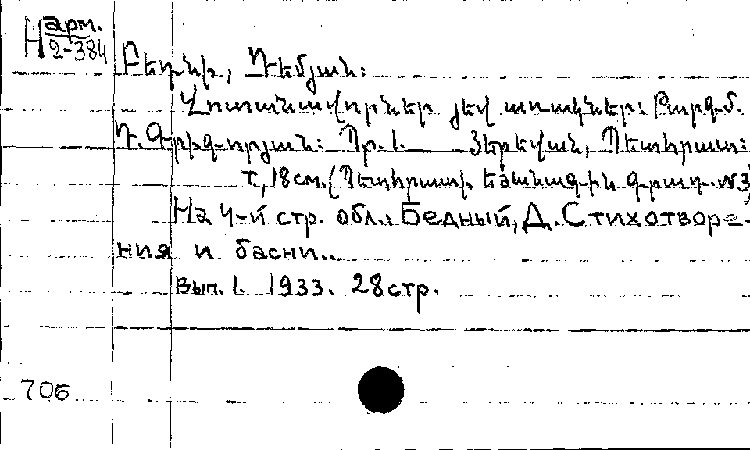 Н арм.
2-384
Բեդնի, Դեմյան:
Վոտանավորներ յեվ առակներ: Թարգմ.
Դ. Գրիգորյան: Պր. 1. Յերեվան, Պետհրատ:
т, 18 см. (Պետհրատի եժանագին գրադ. №3)
На 4-й стр. обл.: Бедный, Д. Стихотворе-
ния и басни..
Вып. 1. 1933. 28 стр.
70б